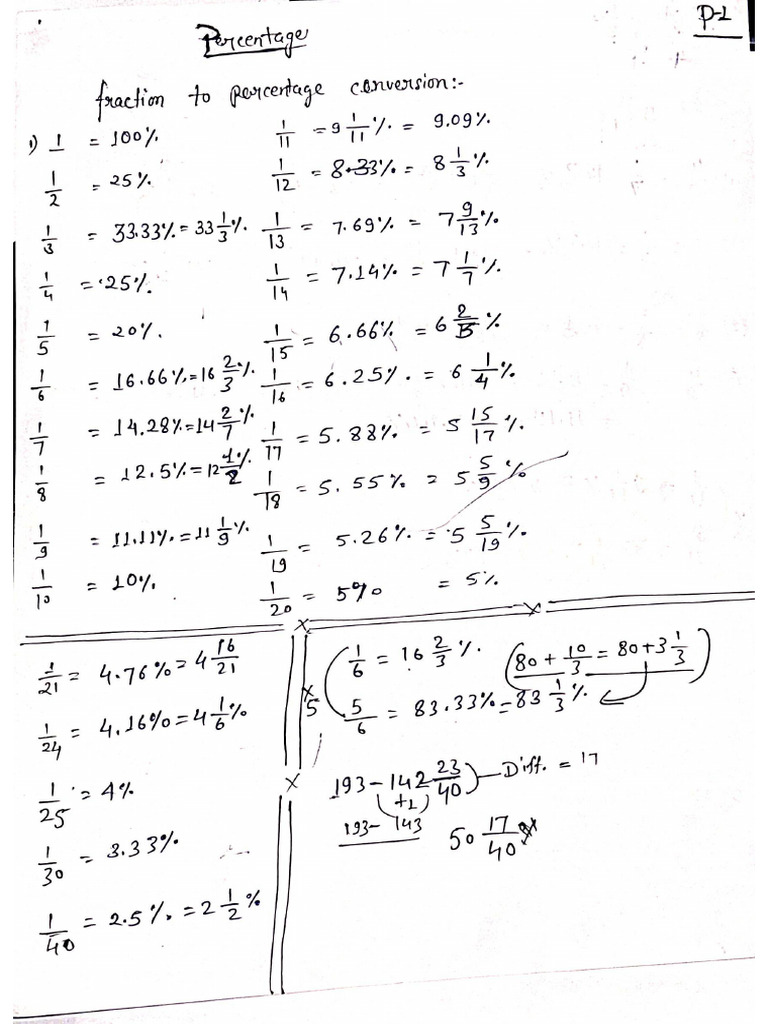 P-1
Percentage
fraction to percentage conversion:-
1) 1 = 100%
1/2 = 25%
1/3 = 33.33% = 33 1/3%
1/4 = 25%
1/5 = 20%
1/6 = 16.66% = 16 2/3%
1/7 = 14.28% = 14 2/7%
1/8 = 12.5% = 12 1/2%
1/9 = 11.11% = 11 1/9%
1/10 = 10%
1/11 = 9 1/11% = 9.09%
1/12 = 8.33% = 8 1/3%
1/13 = 7.69% = 7 9/13%
1/14 = 7.14% = 7 1/7%
1/15 = 6.66% = 6 2/3%
1/16 = 6.25% = 6 1/4%
1/17 = 5.88% = 5 15/17%
1/18 = 5.55% = 5 5/9%
1/19 = 5.26% = 5 5/19%
1/20 = 5% = 5%
1/21 = 4.76% = 4 16/21
1/24 = 4.16% = 4 1/6%
1/25 = 4%
1/30 = 3.33%
1/40 = 2.5% = 2 1/2%
1/6 = 16 2/3%
(80 + 10/3 = 80 + 3 1/3)
x5
5/6 = 83.33% = 83 1/3%
193 - 142 23/40) Diff. = 17
+1
193 - 143
50 17/40